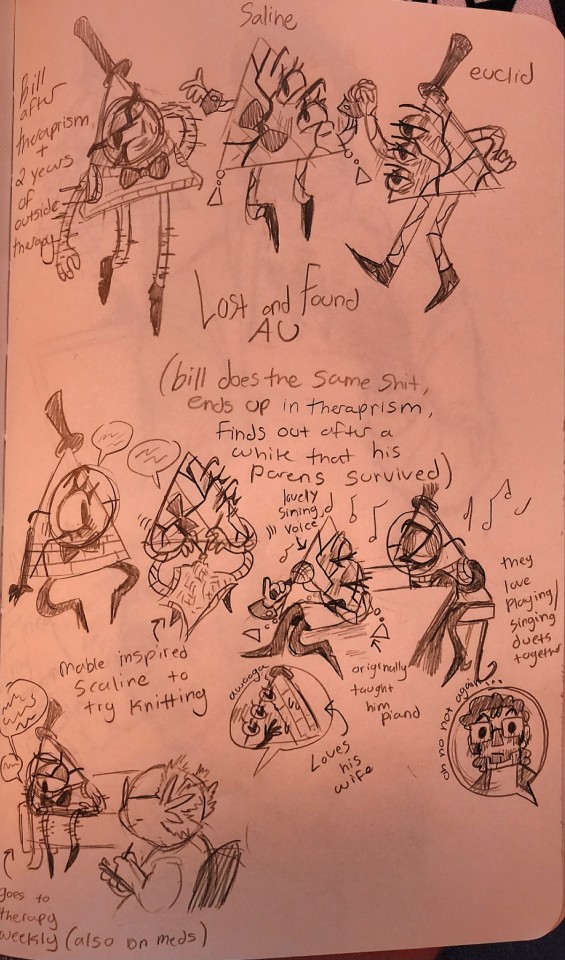 Saline
euclid
Bill
after
theraprism
+
2 years
of
outside
therapy
Lost and Found
AU
(bill does the same shit,
ends up in theraprism,
Finds out after a
while that his
parens survived)
lovely
sining
voice
they
love
playing/
singing
duets
together
Mable inspired
Scaline to
try Knitting
originally
taught
him
piano
awooga
Loves
his
wife
oh no not again...
goes to
therapy
weekly (also on meds)